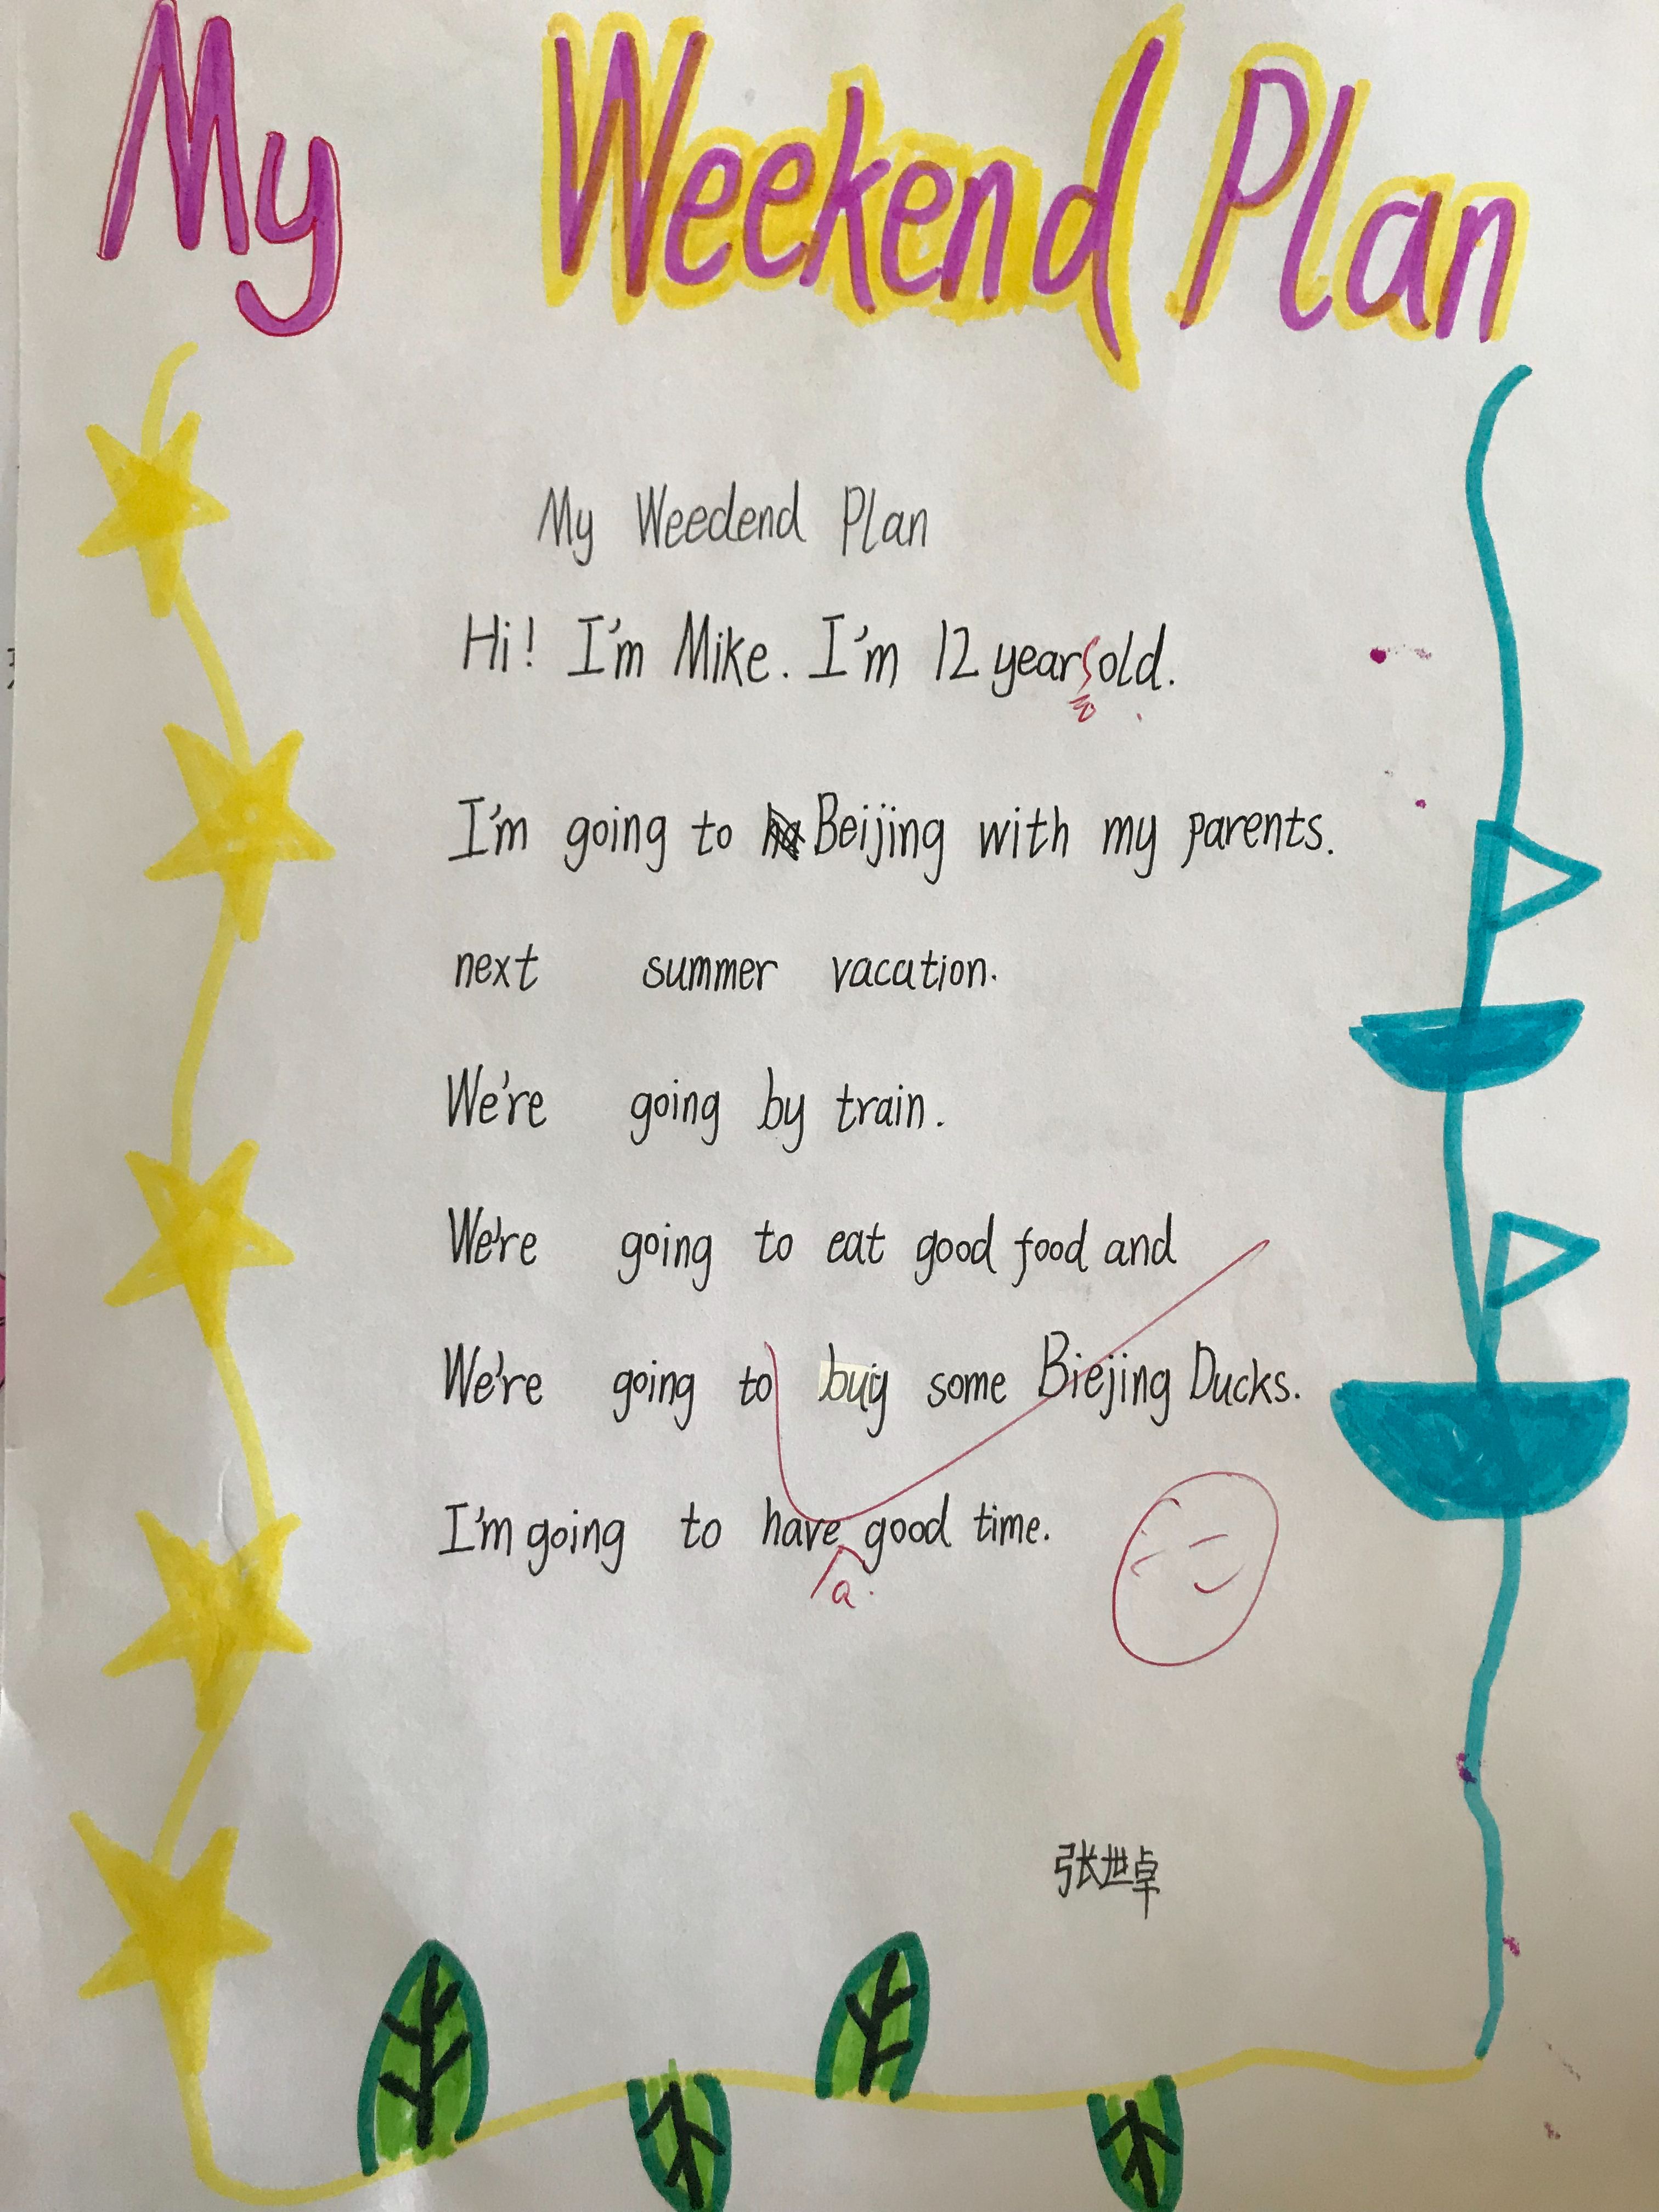 My Weekend Plan
My Weedend Plan
Hi! I'm Mike. I'm 12 years old.
I'm going to Beijing with my parents.
next summer vacation.
We're going by train.
We're going to eat good food and
We're going to buy some Biejing Ducks.
I'm going to have good time.
a.
张世卓